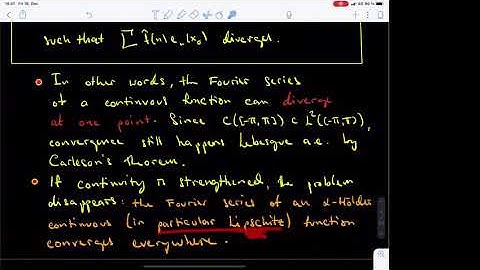 such that ∑ f̂(n) eₙ(x₀) diverges.
In other words, the Fourier series
of a continuous function can diverge
at one point. Since C([-π,π]) ⊂ L²((-π,π)),
convergence still happens Lebesgue a.e. by
Carleson's Theorem.
If continuity is strengthened, the problem
disappears: the Fourier series of an α-Hölder
continuous (in particular Lipschitz) function
converges everywhere.